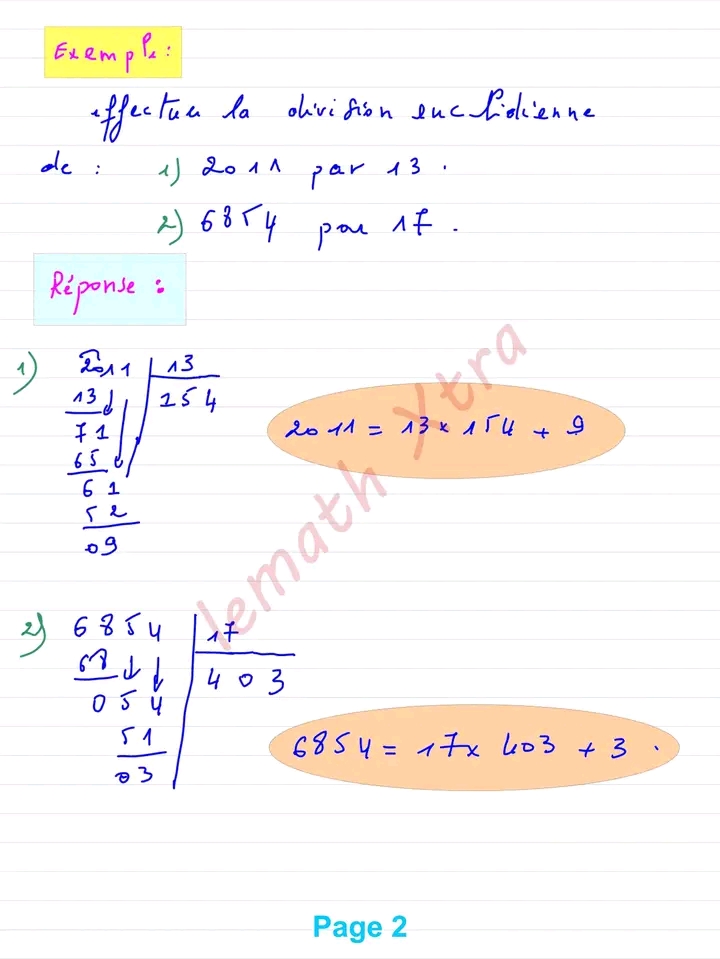 Exemple :
effectuer la division euclidienne
de : 1) 2011 par 13 .
2) 6854 par 17 .
Réponse :
1) 2011 | 13
13 154
71
65
61
52
09
2011 = 13 x 154 + 9
lemath Xtra
2) 6854 | 17
68 403
054
51
03
6854 = 17 x 403 + 3 .
Page 2